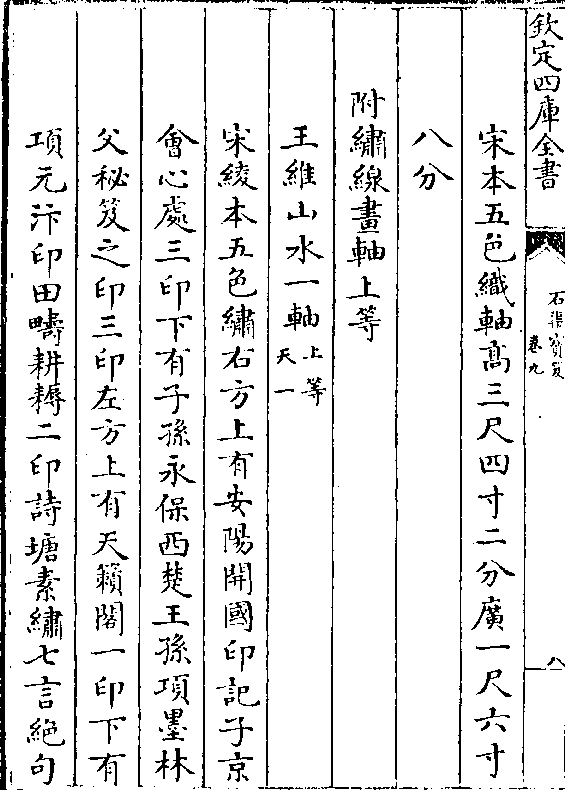 欽定四庫全書
石渠寶笈
卷九
八
宋本五色織軸髙三尺四寸二分廣一尺六寸
八分
附繡線畫軸上等
王維山水一軸上等天一
宋綾本五色繡右方上有安陽開國印記子京
會心處三印下有子孫永保西楚王孫項墨林
父秘笈之印三印左方上有天籟閣一印下有
項元汴印田疇耕耨二印詩塘素繡七言絶句